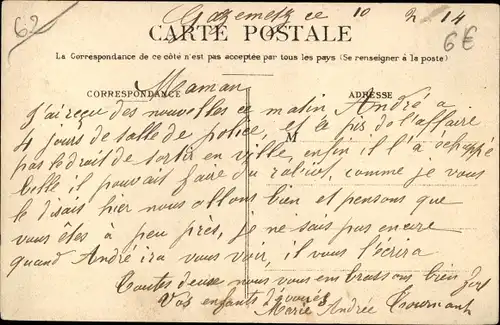 62
Gazemetz ce 10 2 14
6€
CARTE POSTALE
La Correspondance de ce côté n'est pas acceptée par tous les pays (Se renseigner à la poste)
Maman
CORRESPONDANCE
ADRESSE
J'ai reçu des nouvelles ce matin André a
4 jours de salle de police, et le pis de l'affaire
M
pas le droit de sortir en ville, enfin il l'a échappé
belle il pouvait faire du rabiot, comme je vous
le disais hier nous allons bien et pensons que
vous êtes à peu près, je ne sais pas encore
quand André ira vous voir, il vous l'écrira
Toutes deux nous vous embrassons bien fort
Vos enfants dévoués
Marie Andrée